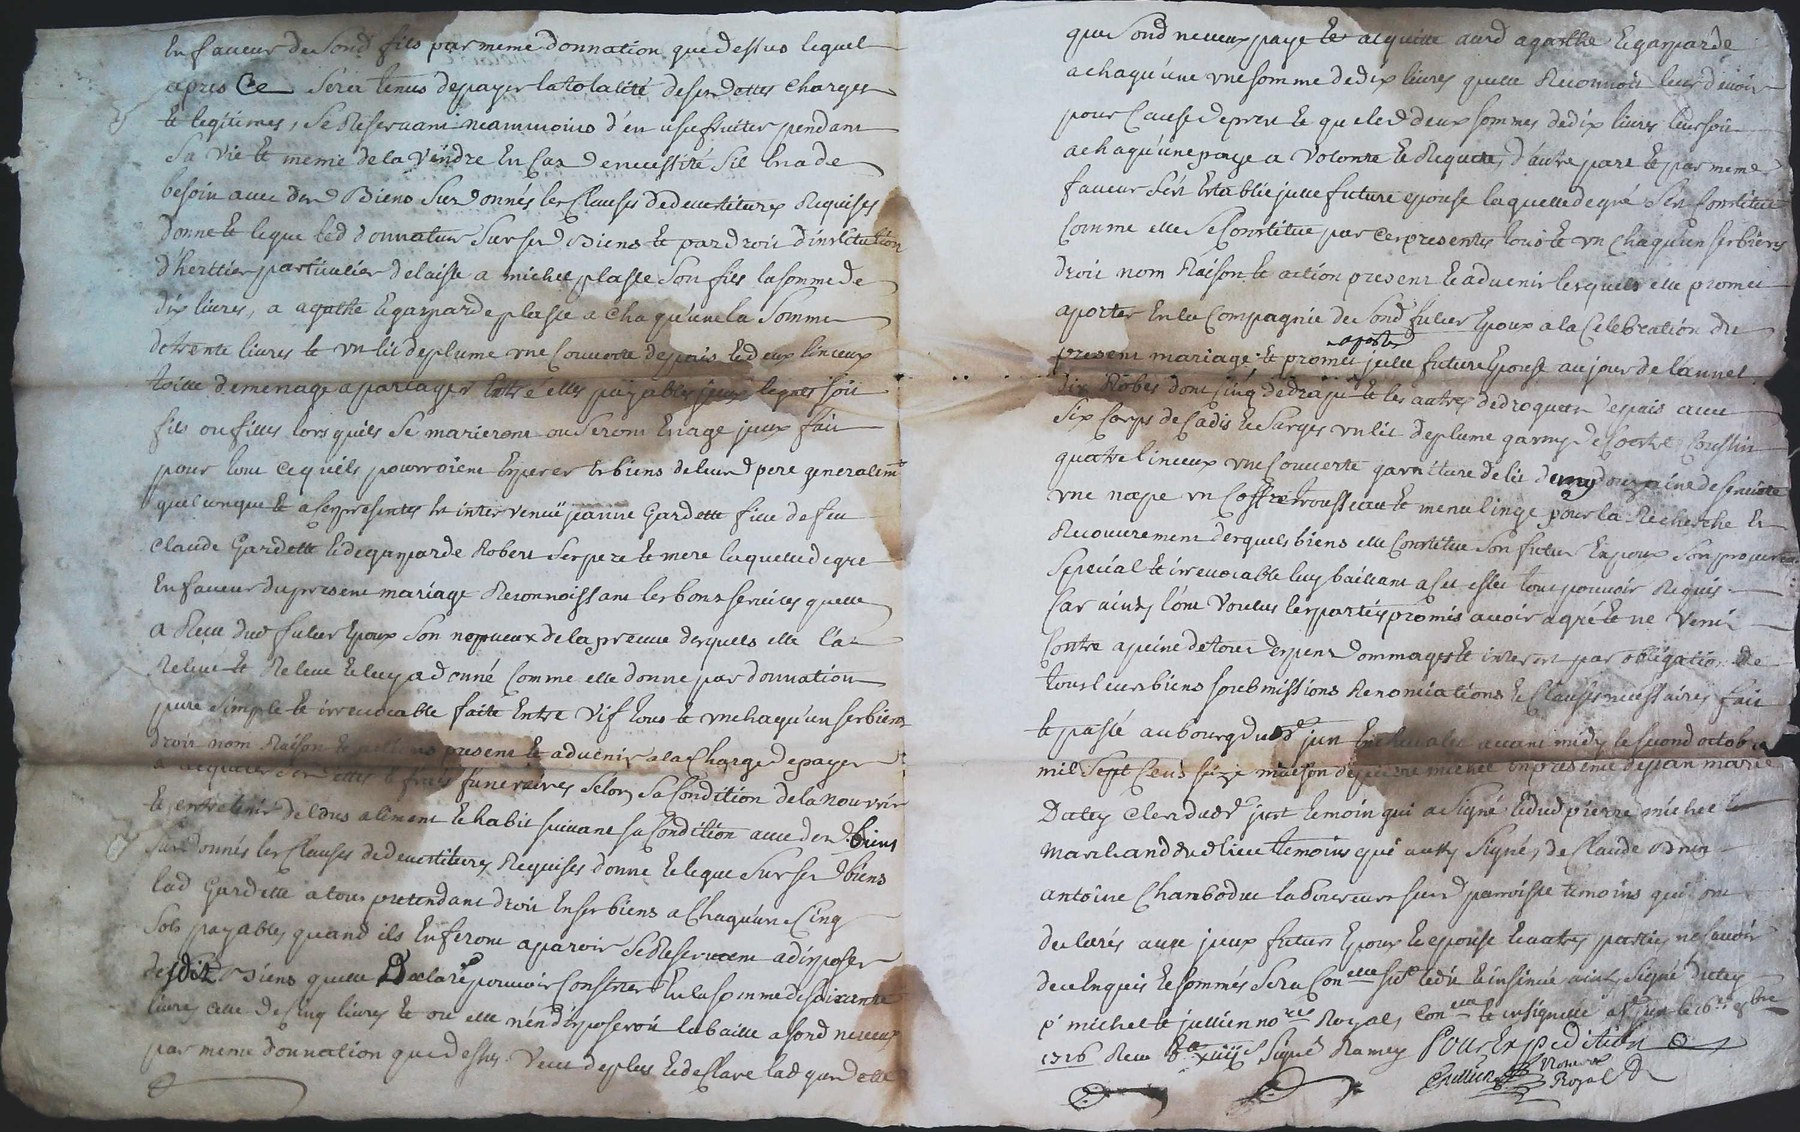 En faveur de Sond fils par meme donnation que dessus lequel
apres Ce Sera tenus de payer la totalité de ses dottes charges
et legitimes, Se Reservant neammoins d'en usufruiter pendant
Sa vie et meme de la vendre En Cas de necessité Sil En a de
besoin avec desd Biens Surdonnés les Clauses de devettitures Requises
donne et legue led donnateur Sur sesd Biens et par droit d'institution
d'herttier particulier delaisse a michel plasse Son fils la somme de
dix livres, a agathe et gasparde plasse a chaqu'une la Somme
de trente livres et un lit de plume une Couverte despais et deux linceux
toille de menage a partager Entre elles payables jceux legats soit
fils ou filles lors quils Se marieront ou Seront En age jceux fait
pour tout ce quils pourroient Esperer Es biens de leurd pere generalemt
quelconque et a ses presentes Est intervenüe jeanne Gardette fille de feu
Claude Gardette et de gasparde Robert Ses pere et mere laquelle de gre
En faveur du present mariage Reconnoissant les bons services quelle
a Receu dud futur Epoux Son nepveux de la preuve desquels elle l'a
Relevé et Releve et luy a donné Comme elle donne par donnation
pure Simple et irrevocable faite Entre vif tous et un chaqu'un ses biens
droit nom Raison et actions present et advenir a la Charge de payer
a acquiter Ses dettes et frais funeraires Selon Sa Condition de la nourrir
et entretenir de tous aliment et habit suivant sa Condition avec desd biens
Surdonnés les Clauses de devettitures Requises donne et legue Sur sesd biens
lad Gardette a tous pretendant droit En ses biens a Chaqu'un Cinq
Sols payables quand ils En feront aparoir Se Reservant a disposer
desdits Biens quelle Declare pouvoir Consister En la somme de soixante
livres celle de Cinq livres et ou elle n'en disposeroit la baille a sond neveux
par meme donnation que dessus. Veut de plus et declare lad gardette
que Sond neveux paye et acquitte auxd agathe et gasparde
a chaqu'une une somme de dix livres quelle Reconnoit leurs devoir
pour Cause de prest et que lesd deux sommes de dix livres leur soit
a chaqu'une paye a volonté et Requette, d'autre part et par meme
faveur S'est Establie jcelle future epouse laquelle de gré S'est Constitué
Comme elle Se Constitue par ces presentes tous et un chaqu'un ses biens
droit nom Raison et action present et advenir lesquels elle promet
aporter En la Compagnie de Sond futur Epoux a la Celebration du
present mariage et promet aporter jcelle future Epouse au jour de l'annel
dix Robes dont Cinq de drap et les autres de droguet despais avec
Six Corps de Cadis et Sarges un lit de plume garny de Coetre Coussin
quatre linceux une Couverte garniture de lit demy douzaine de serviette
une nape un Coffre trousseau et menu linge pour la Recherche et
Recouvrement desquels biens elle Constitue Son futur Espoux Son procureur
Special et irrevocable luy baillant a cet effet tout pouvoir Requis
Car ainsy l'ont Voulus les parties promis avoir agré et ne venir
Contre a peine de tous despens dommages et interest par obligation de
tous leurs biens soubmissions Renonciations et Clauses necessaires fait
et passé au bourg dud jeu avant midy le second octobre
mil Sept Cens Seize maison de pierre michel En presence de jean marie
Datey Clerc dud just temoin qui a Signé et dud pierre michel
marchand dud lieu temoins qui aussy Signé, de Claude Brun
antoine Chambodue laboureurs sur d parroisse temoins qui ont
declarés avec jceux futurs Epoux et epouse et autres parties ne scavoir
de ce Enquis et sommés Sera Conellé et insinué ainsy Signé datey
p. michel et jullien nore Royal, Conellé et insinuée a le 16e 8bre
1716 Receu Signé Ramey Pour Expedition
Jullien Nore Royal